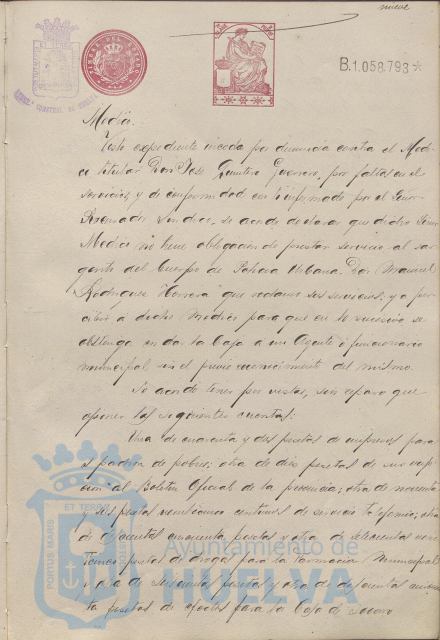 nueve
B.1.058.793*
TIMBRE DEL ESTADO
Medico.
Visto expediente incoado por denuncia contra el Medi-
co titular Don Jose Quintero Guerrero, por faltas en el
servicio, y de conformidad con lo informado por el Señor
Regidor Sindico, se acordó declarar que dicho Señor
Medico no tiene obligacion de prestar servicio al sar-
gento del Cuerpo de Policia Urbana Don Manuel
Rodriguez Herrera que reclamó sus servicios; y a per-
cibir a dicho Medico para que en lo sucesivo se
abstenga en dar la baja a un Agente o funcionario
municipal sin el previo reconocimiento del mismo.
Se acordó tener por vistas, sin reparo que
oponer las siguientes cuentas:
Una de cuarenta y dos pesetas de impresos para
el padron de pobres; otra de diez pesetas de suscrip-
cion al Boletin Oficial de la provincia; otra de noventa
y seis pesetas céntimos de servicio telefonico; otra
de cincuenta pesetas y otra de
pesetas de drogas para la farmacia Municipal
y otra de sesenta pesetas y otra de doscientas
ta pesetas de efectos para la Casa de Socorro
PORTUS MARIS ET TERRAE
Ayuntamiento de
HUELVA